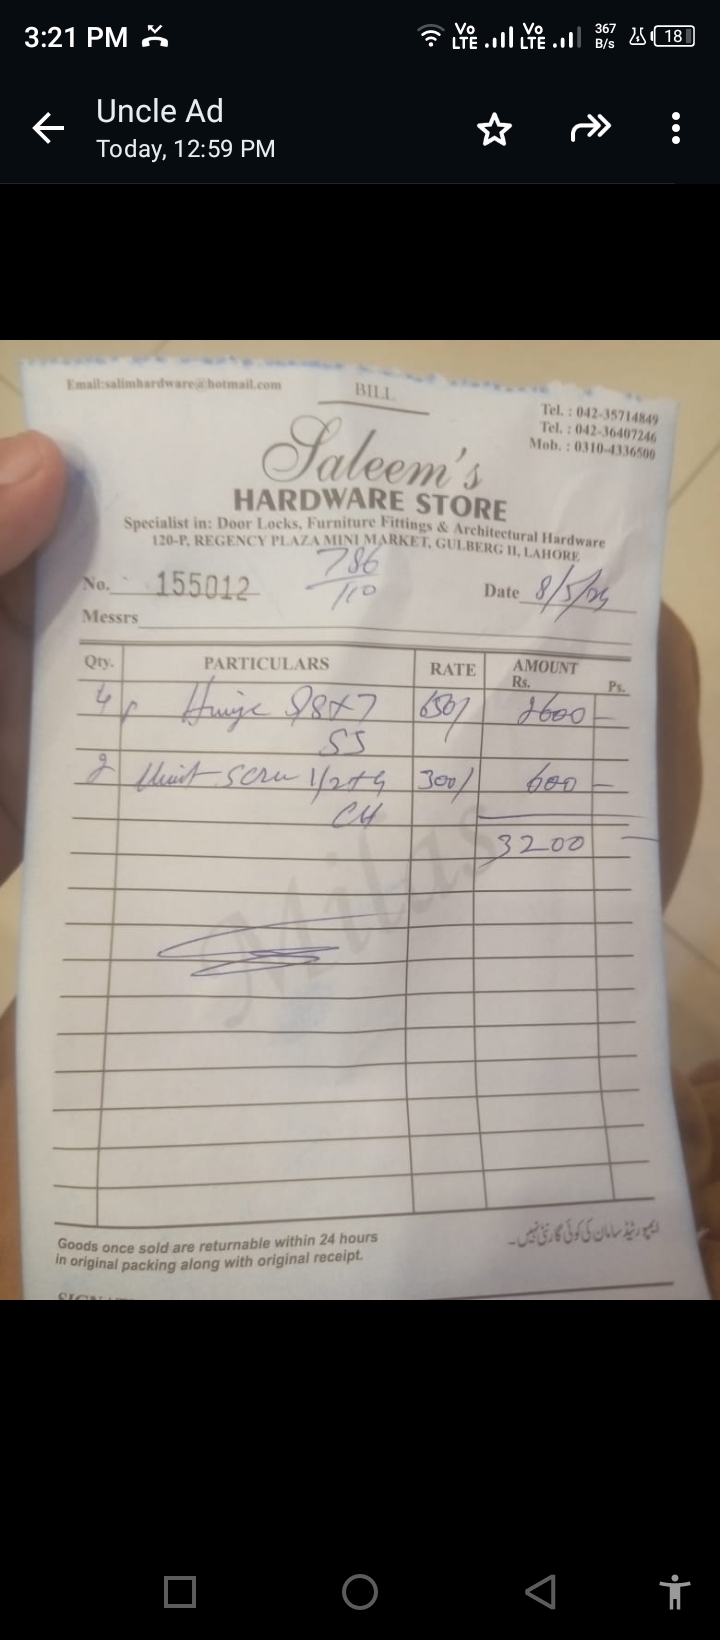 3:21 PM
Vo LTE Vo LTE 367 B/s 18
Uncle Ad
Today, 12:59 PM
Email:salimhardware@hotmail.com
BILL
Tel. : 042-35714849
Tel. : 042-36407246
Mob. : 0310-4336500
Saleem's
HARDWARE STORE
Specialist in: Door Locks, Furniture Fittings & Architectural Hardware
120-P, REGENCY PLAZA MINI MARKET, GULBERG II, LAHORE
786
110
No. 155012 Date 8/5/24
Messrs
Qty. PARTICULARS RATE AMOUNT
Rs. Ps.
4 P Hinge 5/8+7 650/ 2600
SS
2 screw 1/2+4 300/ 600
CH
3200
Milas
Goods once sold are returnable within 24 hours
in original packing along with original receipt.
امپورٹیڈ سامان کی کوئی گارنٹی نہیں۔